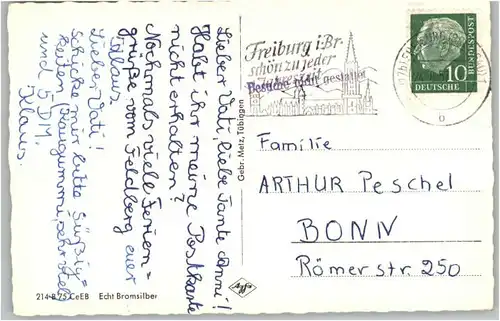 Lieber Vati, liebe Tante Anni!
Habt ihr meine Postkarte
nicht erhalten?
Nochmals viele Ferien=
grüße vom Feldberg euer
Klaus
Lieber Vati!
Schicke mir bitte Süßig=
keiten (Kaugummi, sehr viel)
und 5 DM.
Klaus.
214 B 75 CeEB Echt Bromsilber
Gebr. Metz, Tübingen
Freiburg i. Br.
schön zu jeder
Besuche nicht gestattet
10
DEUTSCHE
BUNDESPOST
Familie
ARTHUR Peschel
BONN
Römerstr. 250
Agfa